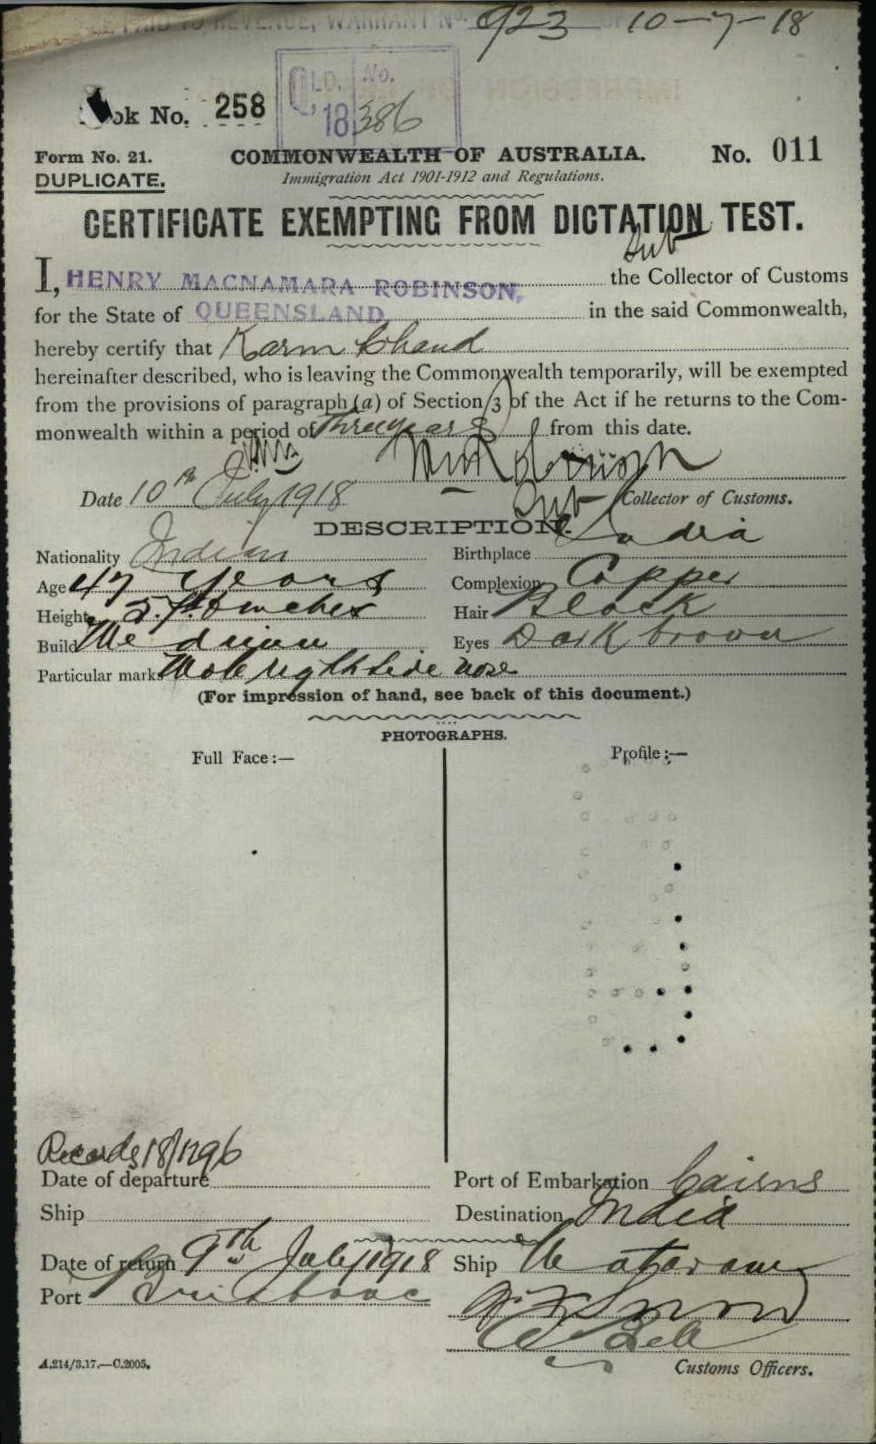 PAID TO REVENUE, WARRANT No. 923 OF 10-7-18
ok No. 258
Q'LD. No.
18 386
Form No. 21. COMMONWEALTH OF AUSTRALIA. No. 011
DUPLICATE. Immigration Act 1901-1912 and Regulations.
CERTIFICATE EXEMPTING FROM DICTATION TEST.
Sub
I, HENRY MACNAMARA ROBINSON, the Collector of Customs
for the State of QUEENSLAND, in the said Commonwealth,
hereby certify that Karm Chand
hereinafter described, who is leaving the Commonwealth temporarily, will be exempted
from the provisions of paragraph (a) of Section 3 of the Act if he returns to the Com-
monwealth within a period of three years from this date.
Date 10th July 1918 Sub Collector of Customs.
DESCRIPTION.
Nationality Indian Birthplace India
Age 47 years Complexion Copper
Height 5 ft inches Hair Black
Build Medium Eyes Dark brown
Particular marks Mole right side nose
(For impression of hand, see back of this document.)
PHOTOGRAPHS.
Full Face:— Profile:—
Records 18/1296
Date of departure Port of Embarkation Cairns
Ship Destination India
Date of return 9th July 1918 Ship Mataram
Port Brisbane
Customs Officers.
A.214/3.17.—C.2005.